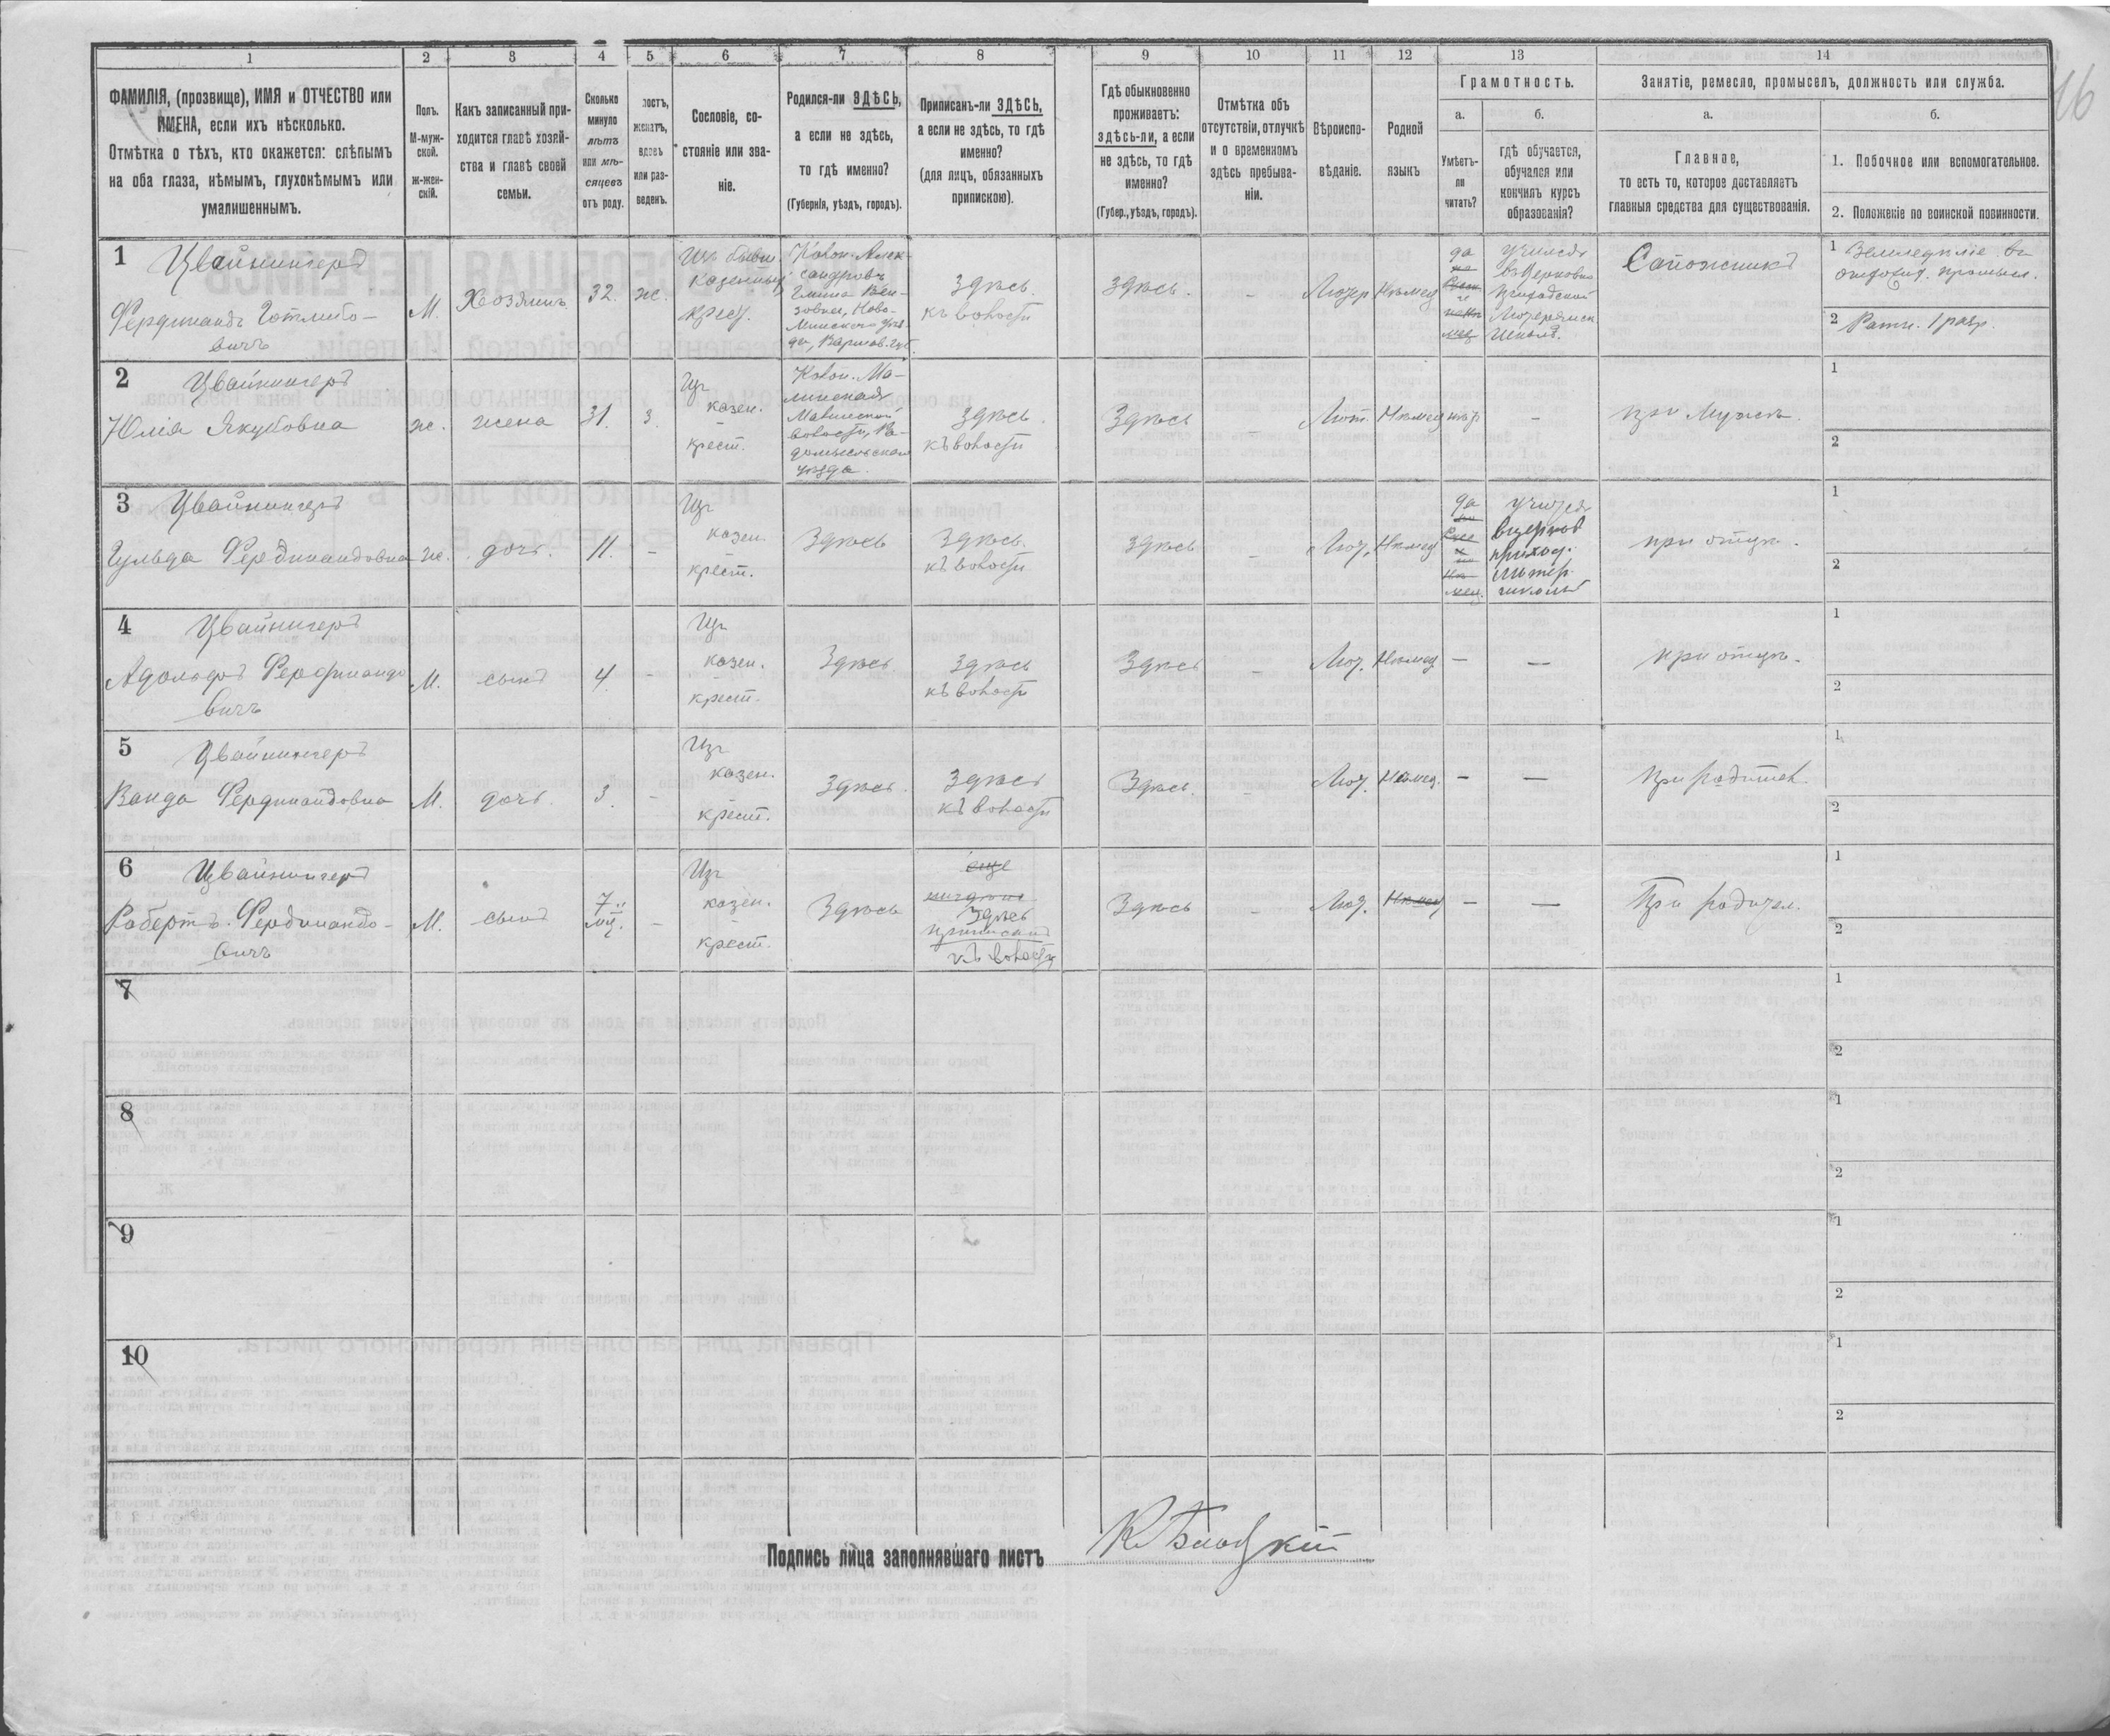 16
1 2 3 4 5 6 7 8 9 10 11 12 13 14
ФАМИЛІЯ, (прозвище), ИМЯ и ОТЧЕСТВО или
ИМЕНА, если ихъ нѣсколько.
Отмѣтка о тѣхъ, кто окажется: слѣпымъ
на оба глаза, нѣмымъ, глухонѣмымъ или
умалишеннымъ.
Полъ.
М-муж-
ской.
ж-жен-
скій.
Какъ записанный при-
ходится главѣ хозяй-
ства и главѣ своей
семьи.
Сколько
минуло
лѣтъ
или мѣ-
сяцевъ
отъ роду.
лостъ,
женатъ,
вдовъ
или раз-
веденъ.
Сословіе, со-
стояніе или зва-
ніе.
Родился-ли ЗДѢСЬ,
а если не здѣсь,
то гдѣ именно?
(Губернія, уѣздъ, городъ).
Приписанъ-ли ЗДѢСЬ,
а если не здѣсь, то гдѣ
именно?
(для лицъ, обязанныхъ
припискою).
Гдѣ обыкновенно
проживаетъ:
здѣсь-ли, а если
не здѣсь, то гдѣ
именно?
(Губер., уѣздъ, городъ).
Отмѣтка объ
отсутствіи, отлучкѣ
и о временномъ
здѣсь пребыва-
ніи.
Вѣроиспо-
вѣданіе.
Родной
языкъ
Грамотность.
а.
Умѣетъ-
ли
читать?
б.
гдѣ обучается,
обучался или
кончилъ курсъ
образованія?
Занятіе, ремесло, промыселъ, должность или служба.
а.
Главное,
то есть то, которое доставляетъ
главныя средства для существованія.
б.
1. Побочное или вспомогательное.
2. Положеніе по воинской повинности.
1 Цвайнингеръ
Фердинандъ Готлибо-
вичъ
М. Хозяинъ 32. ж.
Изъ бывш.
казенныхъ
крест.
Колон. Алек-
сандровъ
Ново-
Минскаго уѣз-
да, Варшав. губ.
Здѣсь.
къ волости
Здѣсь. - Лютер Нѣмец
да
Училсъ
въ Церковно
приходской
Лютеранск
школѣ.
Сапожникъ
1 Земледѣліе
2 Ратн. 1 разр.
2 Цвайнингеръ
Юлія Якубовна
ж. жена 31. З.
Изъ
казен.
крест.
Колон. Ма-
линская
Малинской
волости, Ра-
домысльскаго
уѣзда.
Здѣсь.
къ волости
Здѣсь - Лют. Нѣмец нѣтъ - при Мужѣ.
1
2
3 Цвайнингеръ
Гульда Фердинандовна
ж. дочь. 11. -
Изъ
казен.
крест.
Здѣсь
Здѣсь.
къ волости
Здѣсь - Лют. Нѣмец
да
Учится
въ церков
приход.
лютер.
школѣ
при отцѣ.
1
2
4 Цвайнигеръ
Адольфъ Фердинандо
вичъ
М. сынъ 4. -
Изъ
казен.
крест.
Здѣсь.
Здѣсь
къ волости
Здѣсь - Лют. Нѣмец - - при отцѣ.
1
2
5 Цвайнингеръ
Ванда Фердинандовна
М. дочь. 3. -
Изъ
казен.
крест.
Здѣсь.
Здѣсь
къ волости
Здѣсь. - Лют. Нѣмец. - - При родител.
1
2
6 Цвайнингеръ
Робертъ Фердинандо-
вичъ
М. сынъ
7
мц.
-
Изъ
казен.
крест.
Здѣсь
еще
нигдѣ не
Здѣсь
приписанъ
къ волости
Здѣсь - Лют. Нѣмец - - При родител.
1
2
7
1
2
8
1
2
9
1
2
10
1
2
Подпись лица заполнявшаго листъ